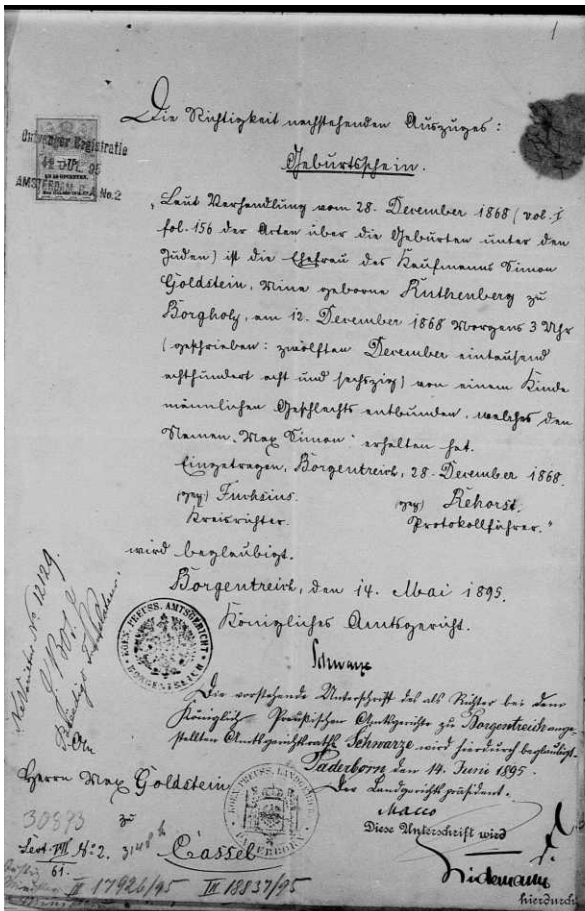 1
Die Richtigkeit nachstehenden Auszuges:
Geburtsschein.
AMSTERDAM No. 2
„Laut Verhandlung vom 28. December 1868 (vol. I
fol. 156 der Acten über die Geburten unter den
Juden) ist die Ehefrau des Kaufmanns Simon
Goldstein, Mina geborne Ruthenberg zu
Borgholz, am 12. December 1868 Morgens 3 Uhr
(geschrieben: zwölften December eintausend
achthundert acht und sechszig) von einem Kinde
männlichen Geschlechts entbunden, welches den
Namen „Max Simon“ erhalten hat.
Eingetragen, Borgentreich, 28. December 1868.
(gez) Fuchsius. (gez) Rehorst.
Kreisrichter. Protokollführer.“
wird beglaubigt.
Borgentreich, den 14. Mai 1895.
Königliches Amtsgericht.
KÖN. PREUSS. AMTSGERICHT BORGENTREICH
Schwarze
Die vorstehende Unterschrift des als Richter bei dem
Königlich Preußischen Amtsgerichte zu Borgentreich ange-
stellten Amtsgerichtsraths Schwarze wird hierdurch beglaubigt.
Paderborn, den 14. Juni 1895.
Der Landgerichtspräsident.
Macco
Diese Unterschrift wird
hierdurch
KÖN. PREUSS. LANDGERICHT PADERBORN
No 12129.
An
Herrn Max Goldstein
zu
Cassel
30893
No 2.
61.
III 17926/95 III 18837/95